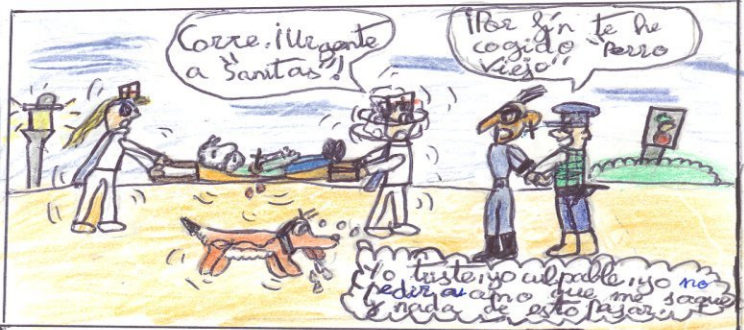 Corre. ¡Urgente
a "Sanitas"!
¡Por fin te he
cogido "Perro
viejo"
Yo triste, yo culpable, yo no
pedir a amo que me saque
y nada de esto pasar.